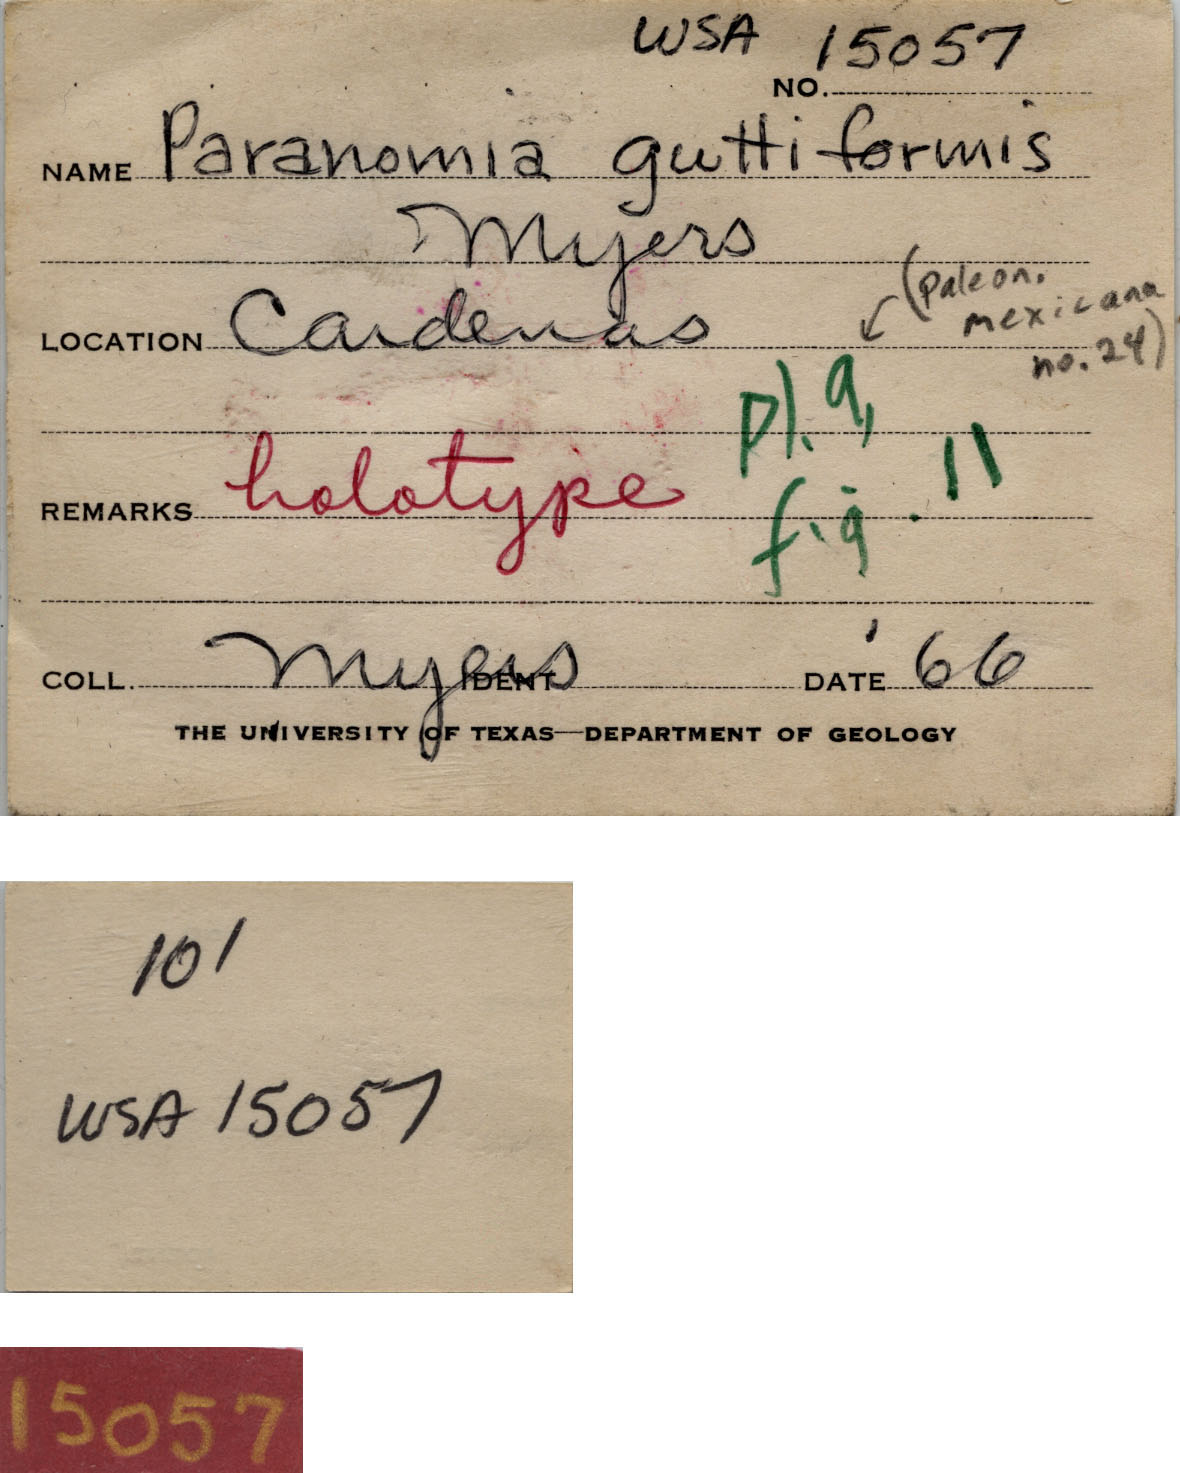 WSA 15057
NO.
NAME Paranomia guttiformis
Myers
(paleon.
mexicana
no. 24)
LOCATION Cardenas
pl. 9,
REMARKS holotype
fig. 11
COLL. Myers IDENT. DATE '66
THE UNIVERSITY OF TEXAS—DEPARTMENT OF GEOLOGY
101
WSA 15057
15057